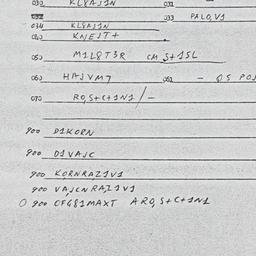 030 KL8AJ1N 031
032 033 PALO,V1
034 KL8AJ1N
040 KNEJT+
050 M1L8T3R CM S+1SL
060 HAJVM7 061 - QS POJ
070 RO,S+C+1N1/-
900 D1KORN
900 D1VAJC
900 KORNRAZ1V1
900 VAJCNRAZ1V1
900 OFG81MAXT ARO,S+C+1N1